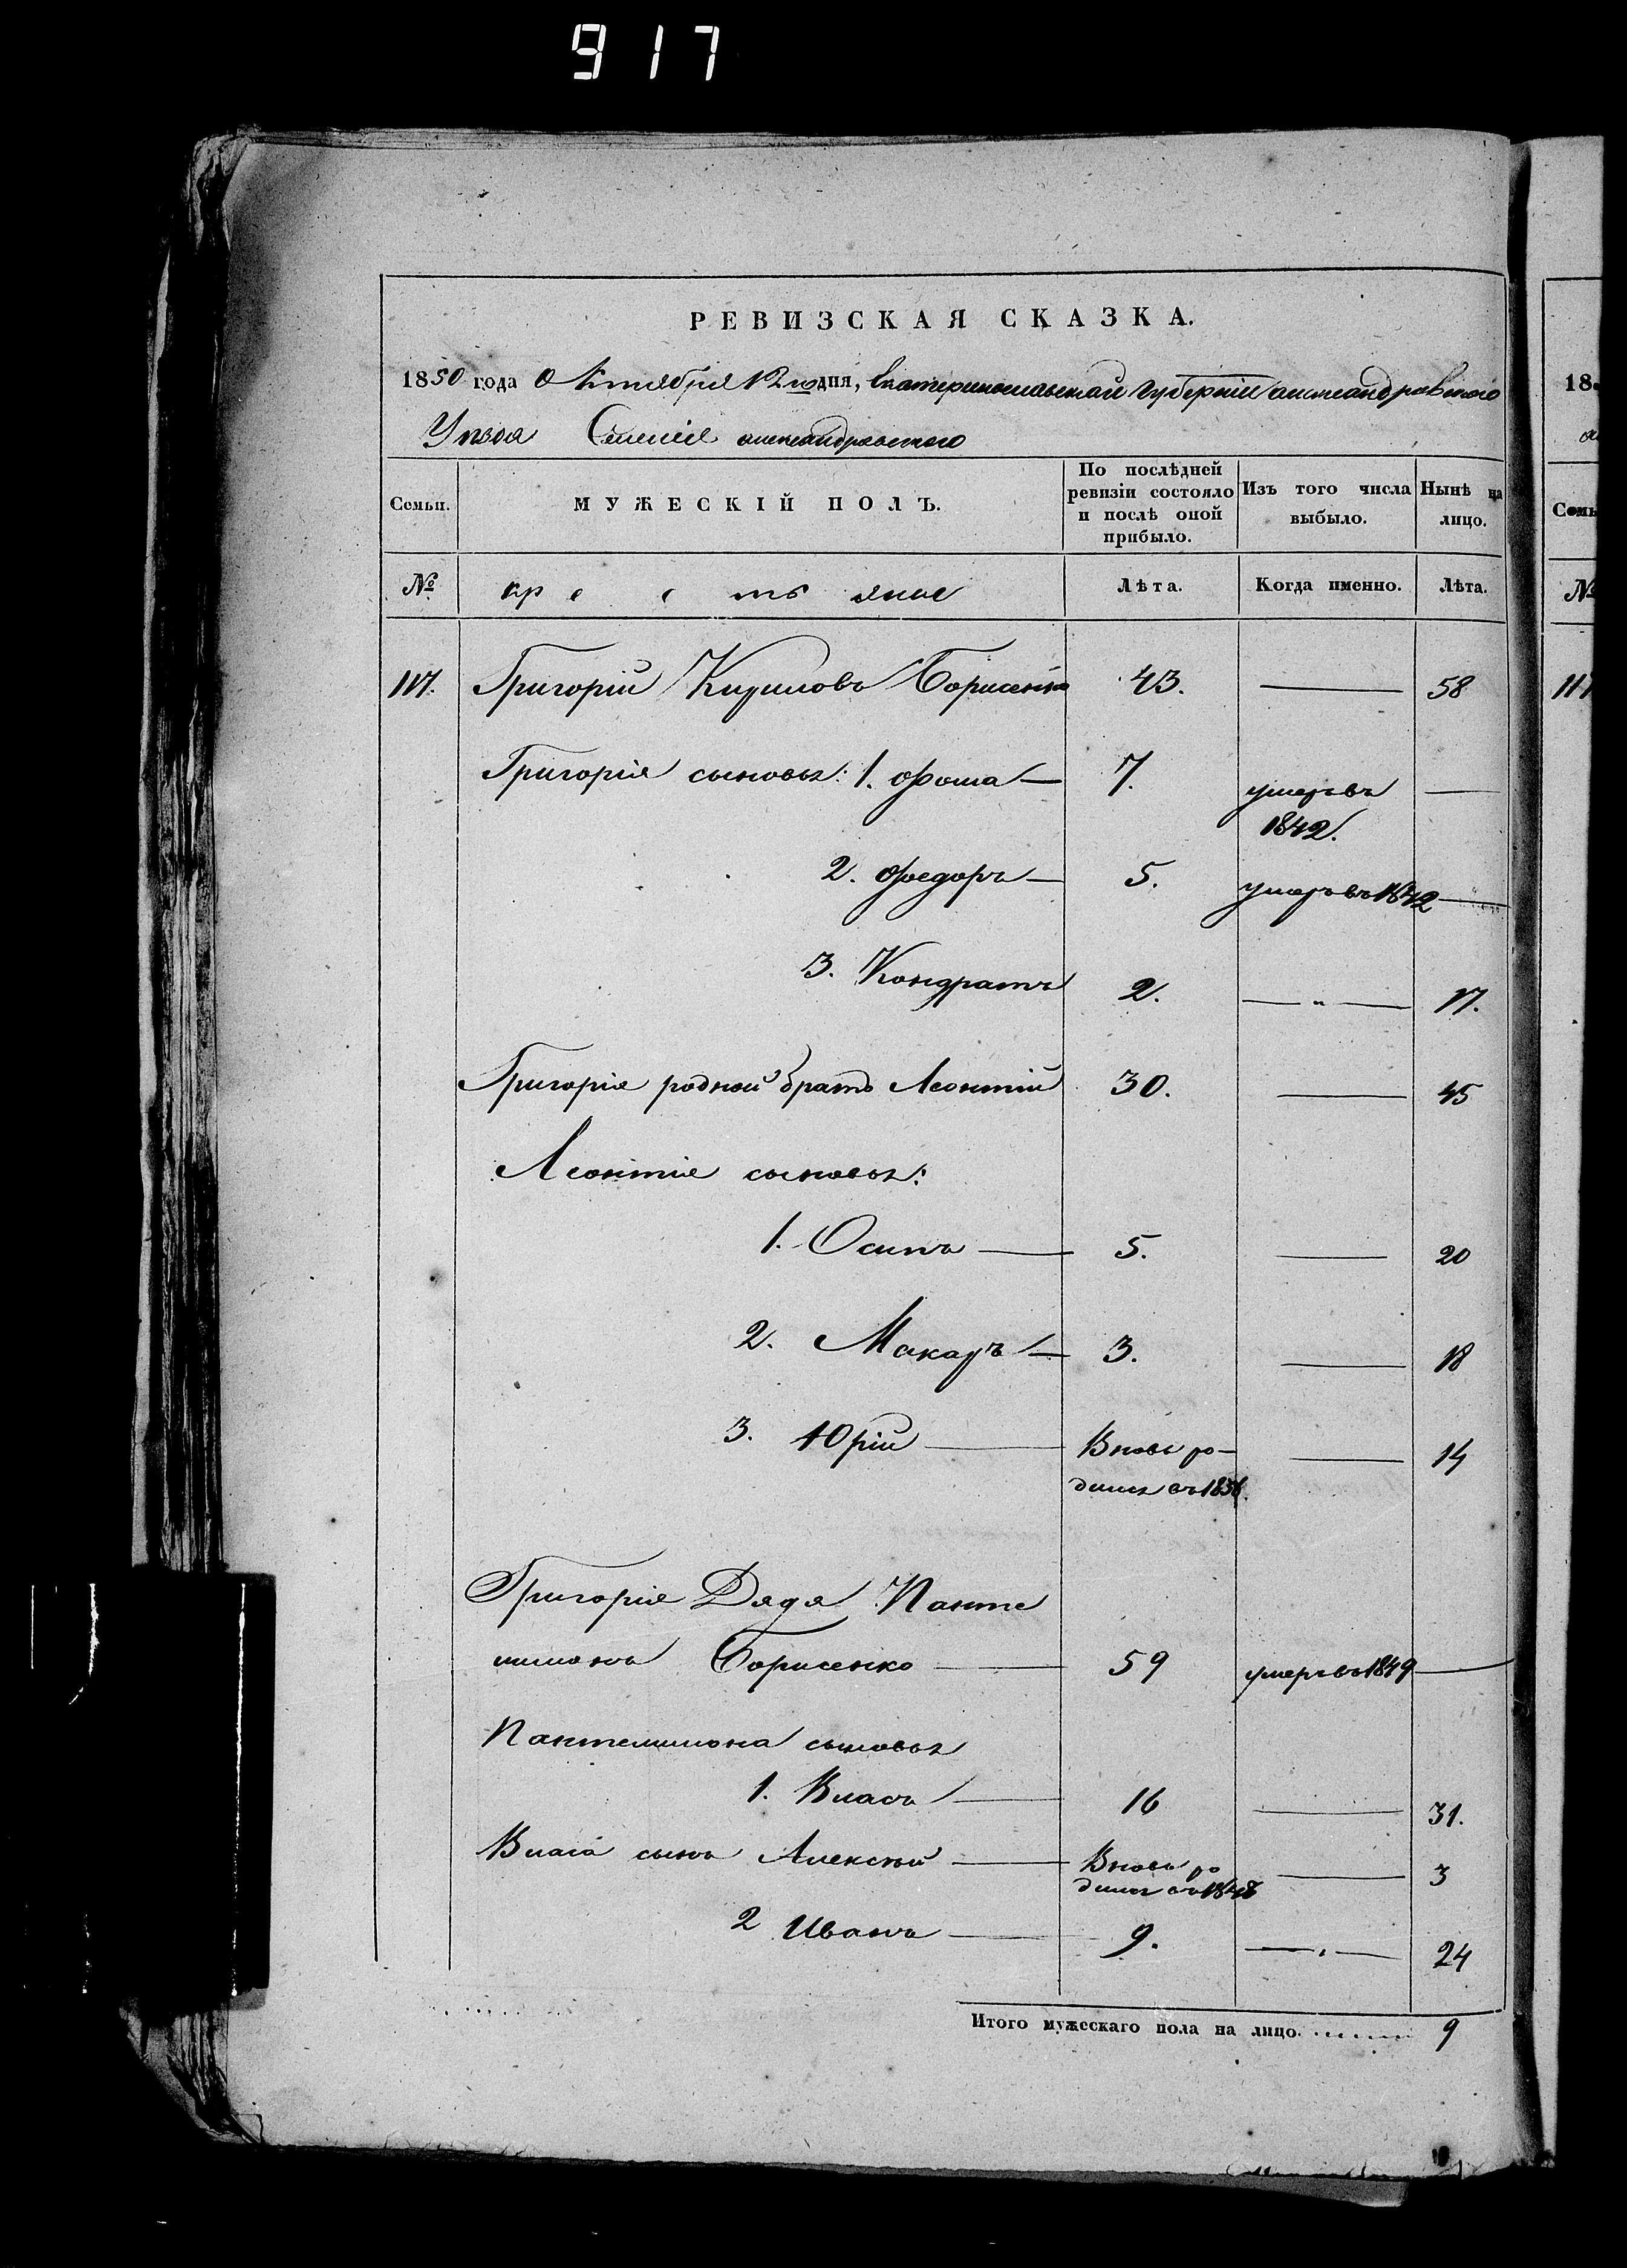 917
РЕВИЗСКАЯ СКАЗКА.
1850 года Октября 12го дня, Екатеринославской Губерніи Александровского
Уезда Селенія александровского
Семьи. МУЖЕСКІЙ ПОЛЪ. По послѣдней ревизіи состояло и послѣ оной прибыло. Изъ того числа выбыло. Нынѣ на лицо.
№ крестьяне Лѣта. Когда именно. Лѣта.
117. Григорій Кириловъ Борисенко 43. — 58
Григорія сыновья: 1. Фома — 7. умеръ въ 1842. —
2. Федоръ — 5. умеръ въ 1842 —
3. Кондратъ 2. — " — 17.
Григорія родной братъ Леонтій 30. — 45
Леонтія сыновья:
1. Осипъ — 5. — 20
2. Макаръ — 3. — 18
3. Юрій — Вновь родился въ 1836. — 14
Григорія Дядя Панте
лимонъ Борисенко — 59 умеръ въ 1849 —
Пантелимона сыновья
1. Власъ — 16 — 31.
Власа сынъ Алексѣй — Вновь родился въ 1848 — 3
2 Иванъ — 9. — " — 24
Итого мужескаго пола на лицо. 9
18
№
117